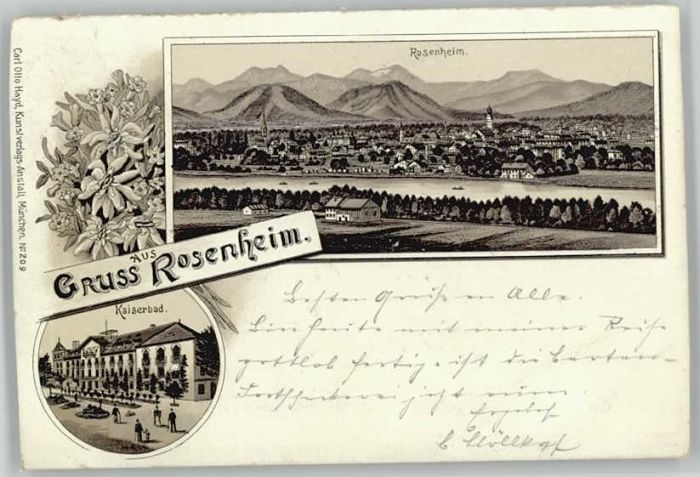 Carl Otto Hayd, Kunstverlags-Anstalt, München. No 209
Rosenheim.
Gruss aus Rosenheim.
Kaiserbad.
Besten Gruss an Alle.
Bin heute mit meiner Reise
gottlob fertig ist die
jetzt